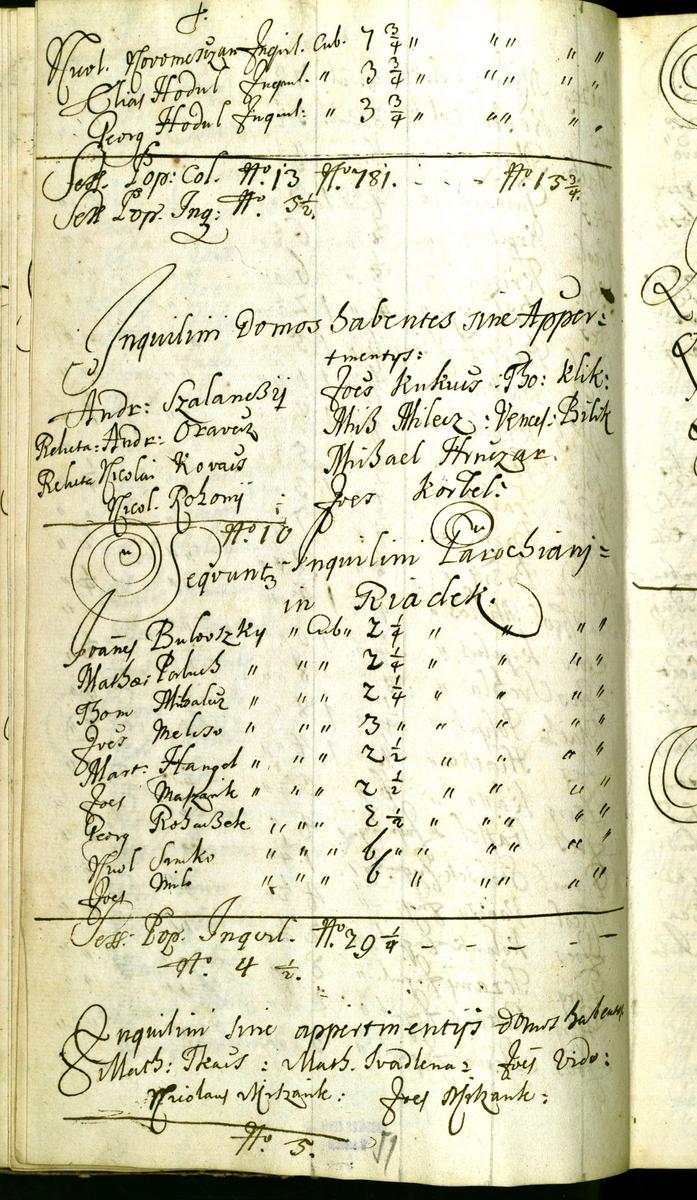 Nicol. Novomeszan Inquil. Cub. 7 3/4 " " " " "
Elias Hodul Inquil. " 3 3/4 " " " " "
Georg Hodul Inquil: " 3 3/4 " " " " "
Sess. Pop: Col. No. 13 No. 781. - - - No. 15 3/4.
Sess. Pop. Inq: No. 5 1/2.
Inquilini Domos habentes sine Apper=
tinentys:
Andr: Szalanczÿ Joes Kukuis : Tho: Klik:
Relicta: Andr: Oravecz Miß Milecz : Vences: Bilik
Relicta Nicolai Kovacs Mißael Hruzar.
Nicol. Rohonij : Joes Korbel:
No. 10
Sequuntur Inquilini Parochiani=
in Riadek.
Joannes Bulovszky " Cub " 2 1/4 " " " "
Mathae: " " " 2 1/4 " " " "
Thom " " " 2 1/4 " " " "
Joes Meliso " " " 3 " " " " "
Mart: Hangel " " " 2 1/2 " " " "
Joes " " " 2 1/2 " " " "
Georg Rohaczek " " " 2 1/2 " " " " "
Nicol Simko " " " 6 " " " " " "
Joes " " 6 " " " " "
Sess: Pop. Inquil. No. 29 1/4 - - - - -
No. 4 1/2.
Inquilini sine appertinentÿs domos habent
Math: Tkacs : Math. Svadlena : Joes Vido :
Nicolaus Mrkank : Joes Mrkank :
No. 5.
51